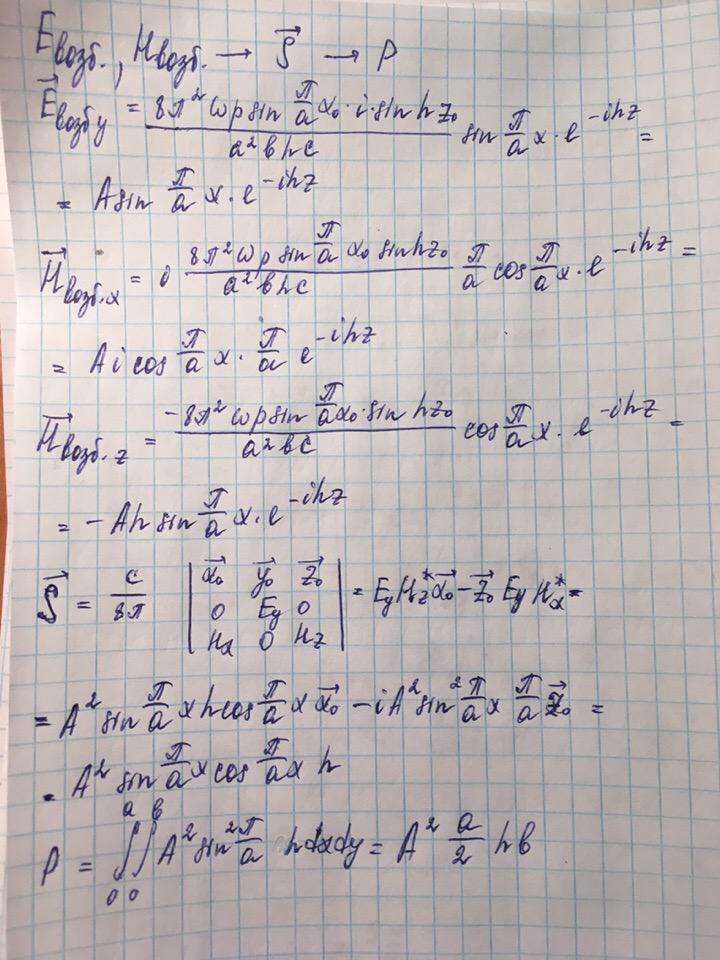 Eвозб., Hвозб. → S⃗ → P
E⃗возб y = (8π² ωp sin π/a x₀ · i · sin hz₀)/(a²bhc) sin π/a x · e^(-ihz) =
= A sin π/a x · e^(-ihz)
H⃗возб.x = (8π² ωp sin π/a x₀ sin hz₀)/(a²bhc) π/a cos π/a x · e^(-ihz) =
= Ai cos π/a x · π/a e^(-ihz)
H⃗возб.z = (-8π² ωp sin π/a x₀ · sin hz₀)/(a²bc) cos π/a x · e^(-ihz) =
= -Ah sin π/a x · e^(-ihz)
S⃗ = c/8π | x⃗₀ y⃗₀ z⃗₀ | = EyHz* x⃗₀ - z⃗₀ EyHx* =
| 0 Ey 0 |
| Hx 0 Hz |
= A² sin π/a x h cos π/a x x⃗₀ - iA² sin² π/a x π/a z⃗₀ =
= A² sin π/a x cos π/a x h
P = ∫₀ᵃ∫₀ᵇ A² sin² π/a h dxdy = A² a/2 hb